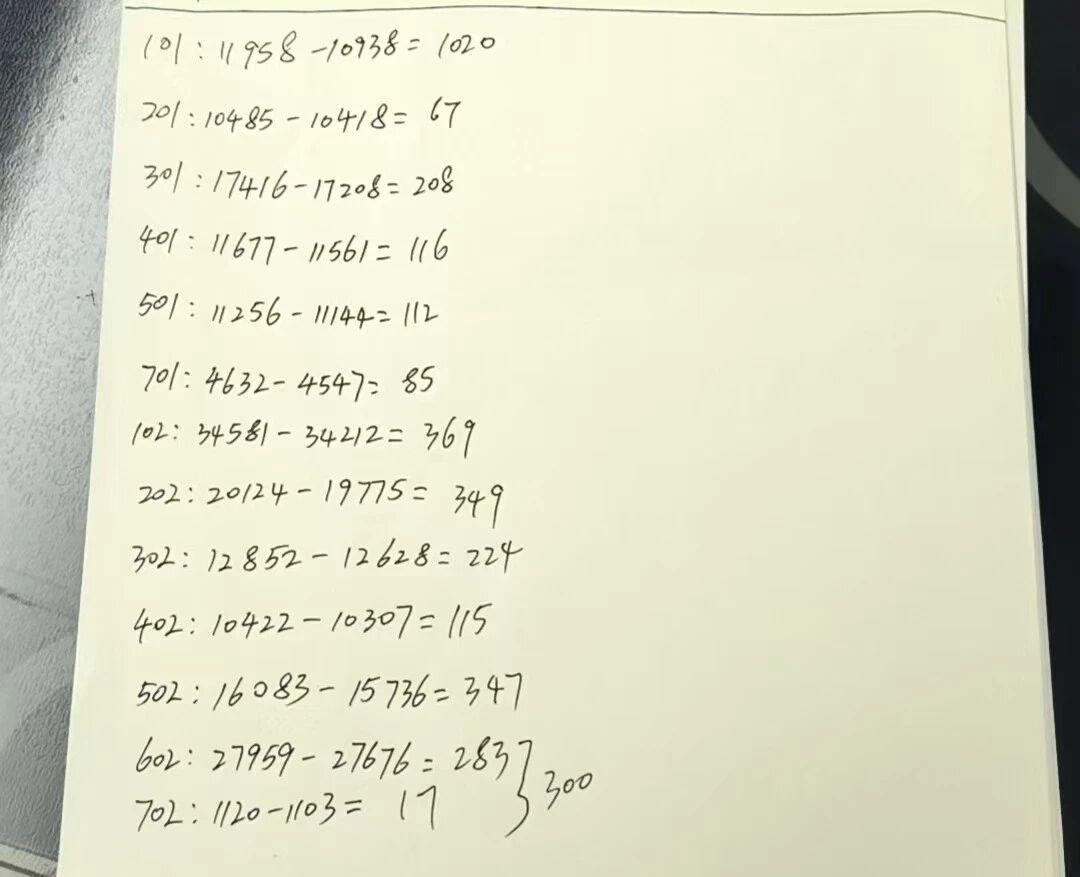 101: 11958-10938=1020
201: 10485-10418=67
301: 17416-17208=208
401: 11677-11561=116
501: 11256-11144=112
701: 4632-4547=85
102: 34581-34212=369
202: 20124-19775=349
302: 12852-12628=224
402: 10422-10307=115
502: 16083-15736=347
602: 27959-27676=283
702: 1120-1103=17 } 300